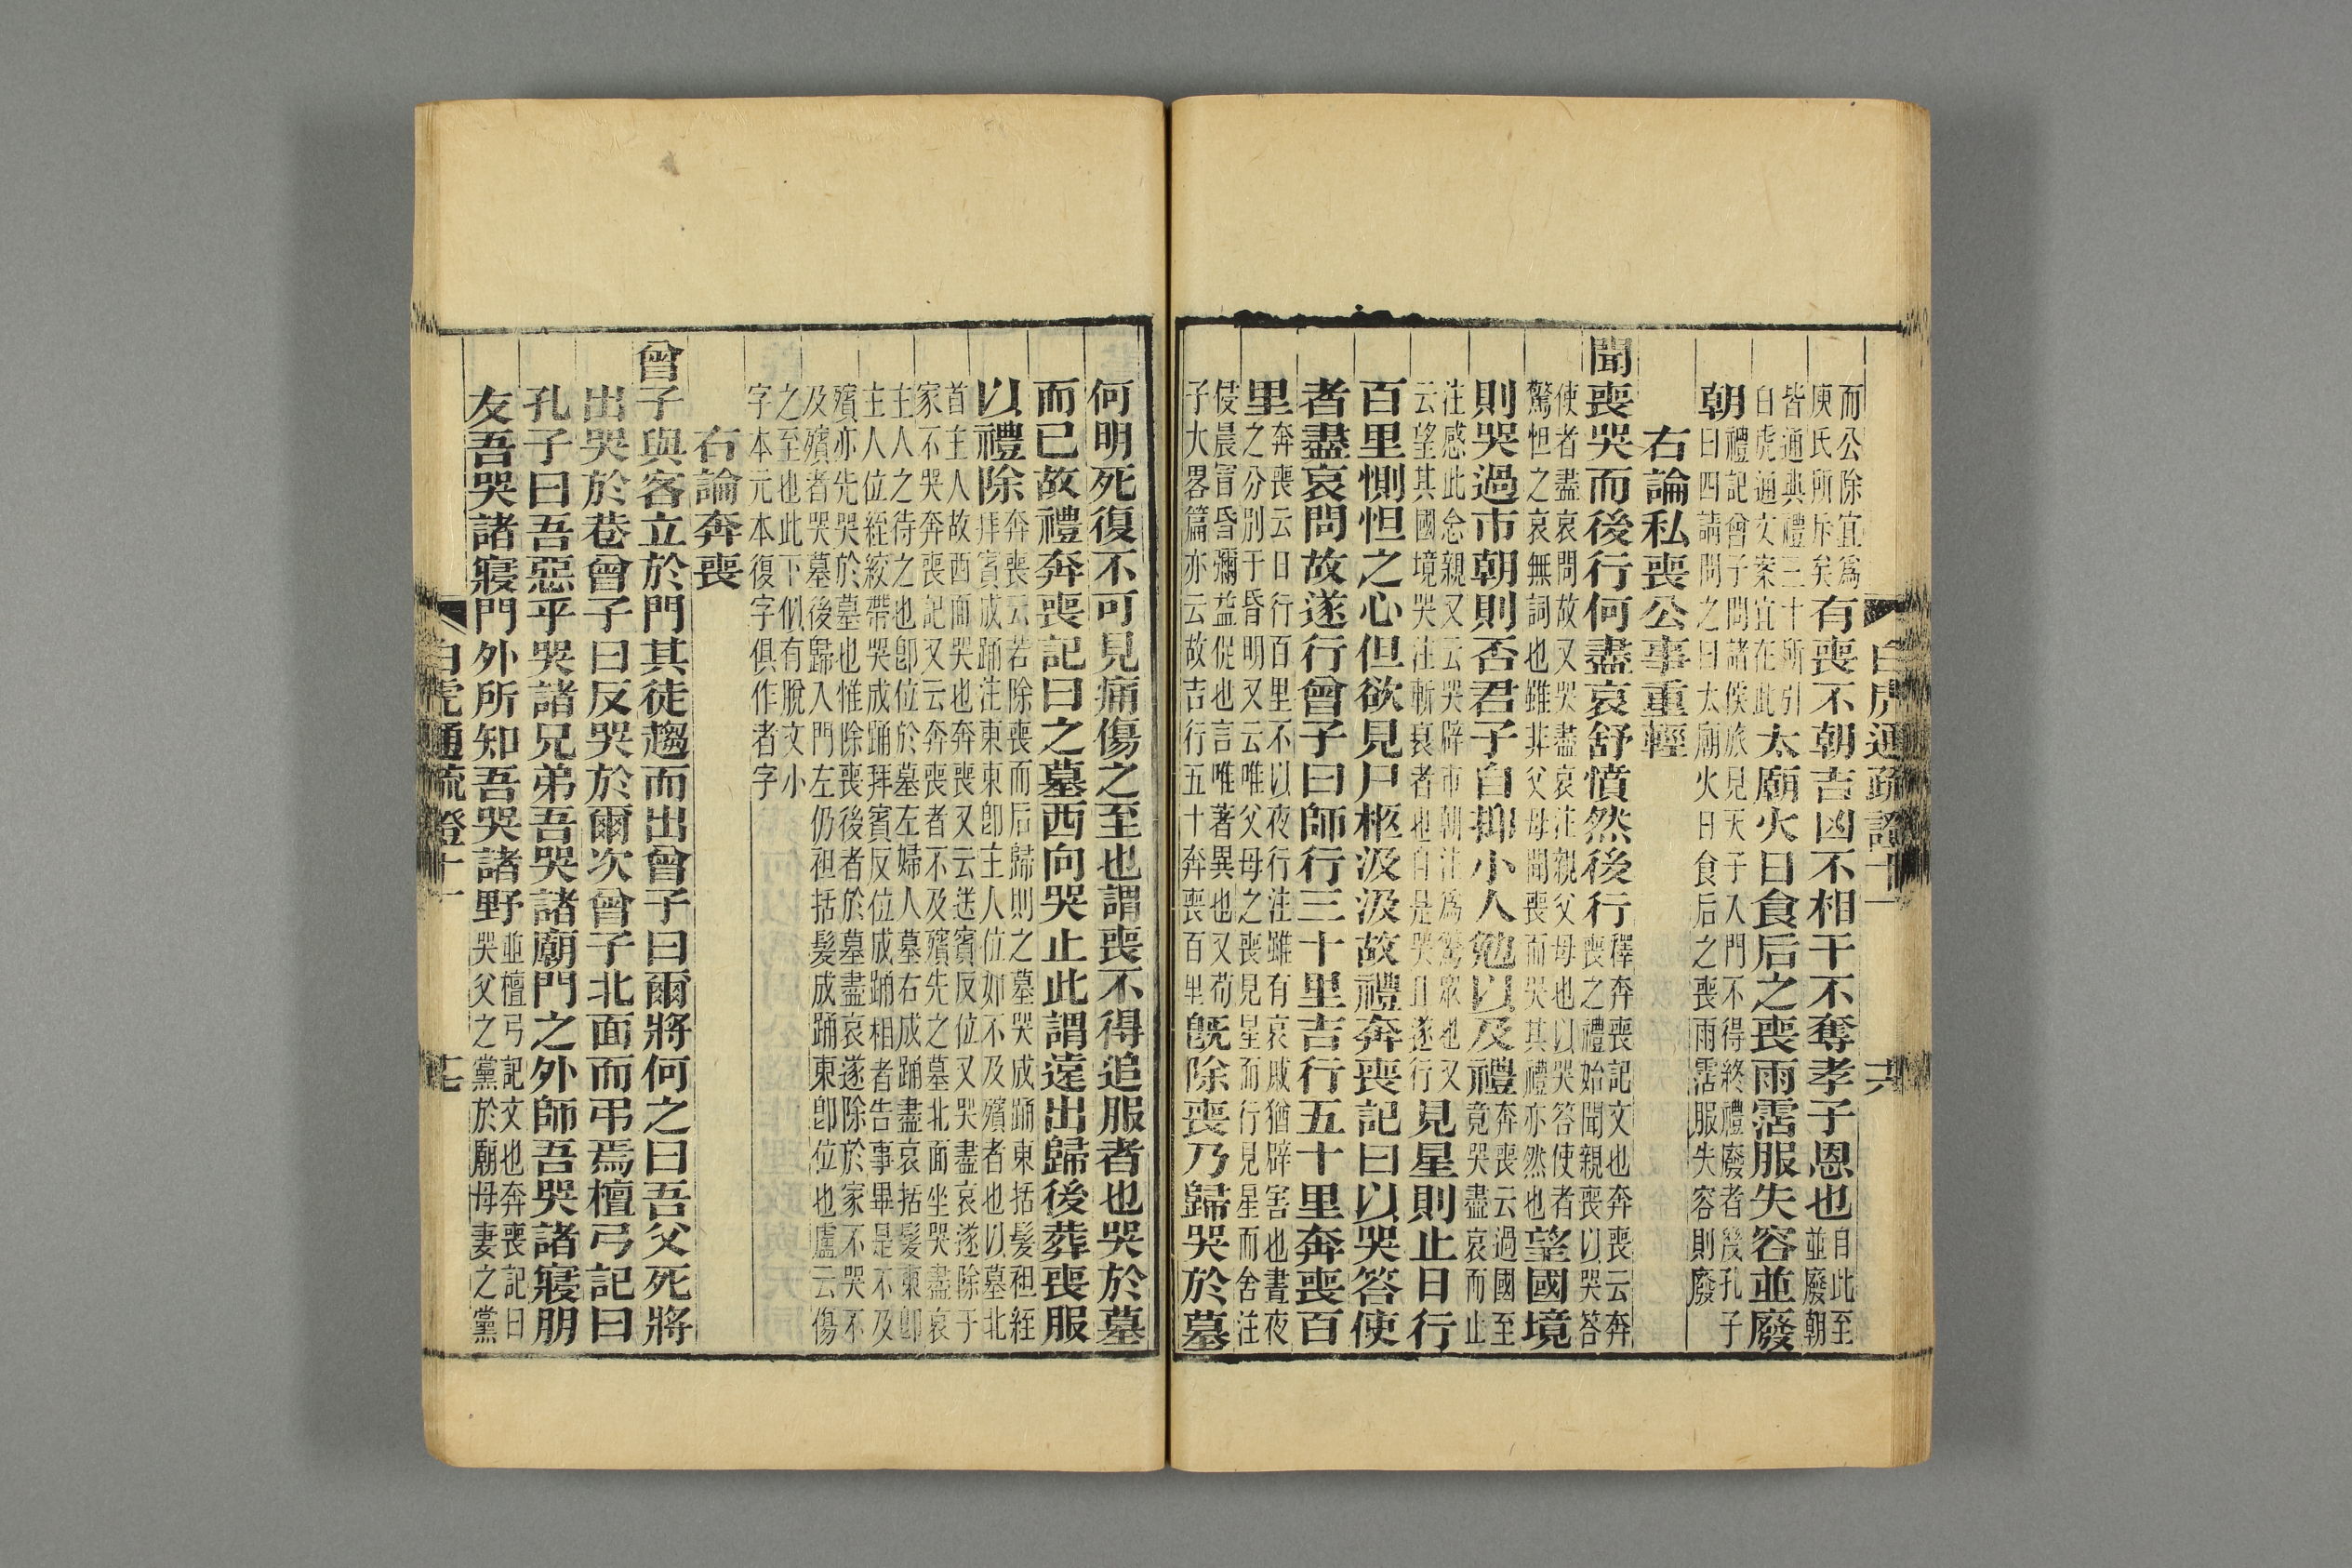 白虎通疏證十一　十六
而公除宜爲
庾氏所斥矣
有喪不朝吉凶不相干不奪孝子恩也
自此至
並廢朝
皆通典禮三十所引
白虎通文案宜在此
太廟火日食后之喪雨霑服失容並廢
朝
禮記曾子問諸侯旅見天子入門不得終禮廢者幾孔子
曰四請問之曰太廟火日食后之喪雨霑服失容則廢
右論私喪公事重輕
聞喪哭而後行何盡哀舒憤然後行
釋奔喪記文也奔喪云奔
喪之禮始聞親喪以哭答
使者盡哀問故又哭盡哀注親父母也以哭答使者
驚怛之哀無詞也雖非父母聞喪而哭其禮亦然也
望國境
則哭過市朝則否君子自抑小人勉以及禮
奔喪云過國至
竟哭盡哀而止
注感此念親又云哭辟市朝注爲驚眾也又
云望其國境哭注斬衰者也自是哭且遂行
見星則止日行
百里惻怛之心但欲見尸柩汲汲故禮奔喪記曰以哭答使
者盡哀問故遂行曾子曰師行三十里吉行五十里奔喪百
里
奔喪云日行百里不以夜行注雖有哀戚猶辟害也晝夜
之分別于昏明又云唯父母之喪見星而行見星而舍注
侵晨冐昏彌益促也言唯著異也又荀
子大畧篇亦云故吉行五十奔喪百里
旣除喪乃歸哭於墓
何明死復不可見痛傷之至也謂喪不得追服者也哭於墓
而已故禮奔喪記曰之墓西向哭止此謂遠出歸後葬喪服
以禮除
奔喪云若除喪而后歸則之墓哭成踊東括髮袒絰
拜賓成踊注東東卽主人位如不及殯者也以墓北
首主人故西面哭也奔喪又云送賓反位又哭盡哀遂除于
家不哭奔喪記又云奔喪者不及殯先之墓北面坐哭盡哀
主人之待之也卽位於墓左婦人墓右成踊盡哀括髮東卽
主人位絰絞帶哭成踊拜賓反位成踊相者告事畢是不及
殯亦先哭於墓也惟除喪後者於墓盡哀遂除於家不哭不
及殯者哭墓後歸入門左仍袒括髮成踊東卽位也盧云傷
之至也此下似有脫文小
字本元本復字俱作者字
右論奔喪
曾子與客立於門其徒趨而出曾子曰爾將何之曰吾父死將
出哭於巷曾子曰反哭於爾次曾子北面而弔焉檀弓記曰
孔子曰吾惡乎哭諸兄弟吾哭諸廟門之外師吾哭諸寢朋
友吾哭諸寢門外所知吾哭諸野
並檀弓記文也奔喪記曰
哭父之黨於廟母妻之黨
白虎通疏證十一　十七